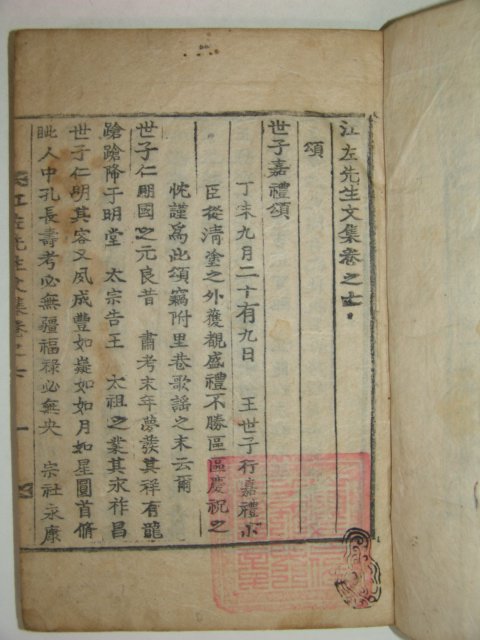 江左先生文集卷之七
頌
世子嘉禮頌
丁未九月二十有九日 王世子行嘉禮小
臣從清塗之外獲覩盛禮不勝區區慶祝之
忱謹爲此頌竊附里巷歌謠之末云爾
世子仁明國之元良昔 肅考末年夢發其祥有龍
蹌蹌降于明堂 太宗告王 太祖之業其永祚昌
世子仁明其容又夙成豊如嶷如如月如星圓首脩
眦人中孔長壽考必無疆福祿必無央 宗社永康
江左先生文集卷之七 一